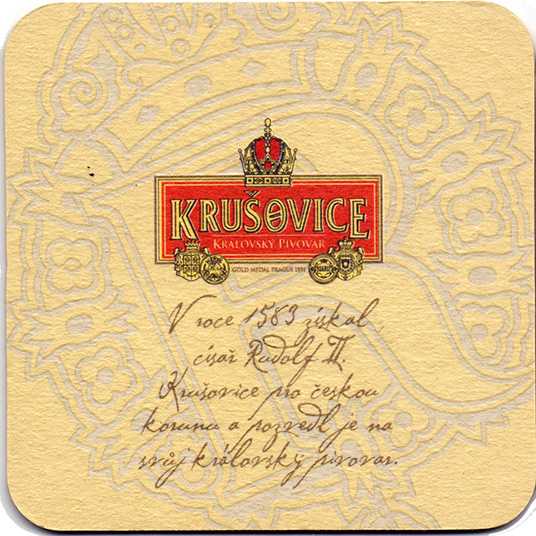 KRUŠOVICE
KRÁLOVSKÝ PIVOVAR
GOLD MEDAL PRAGUE 1891
V roce 1583 získal
císař Rudolf II.
Krušovice pro českou
korunu a pozvedl je na
svůj královský pivovar.